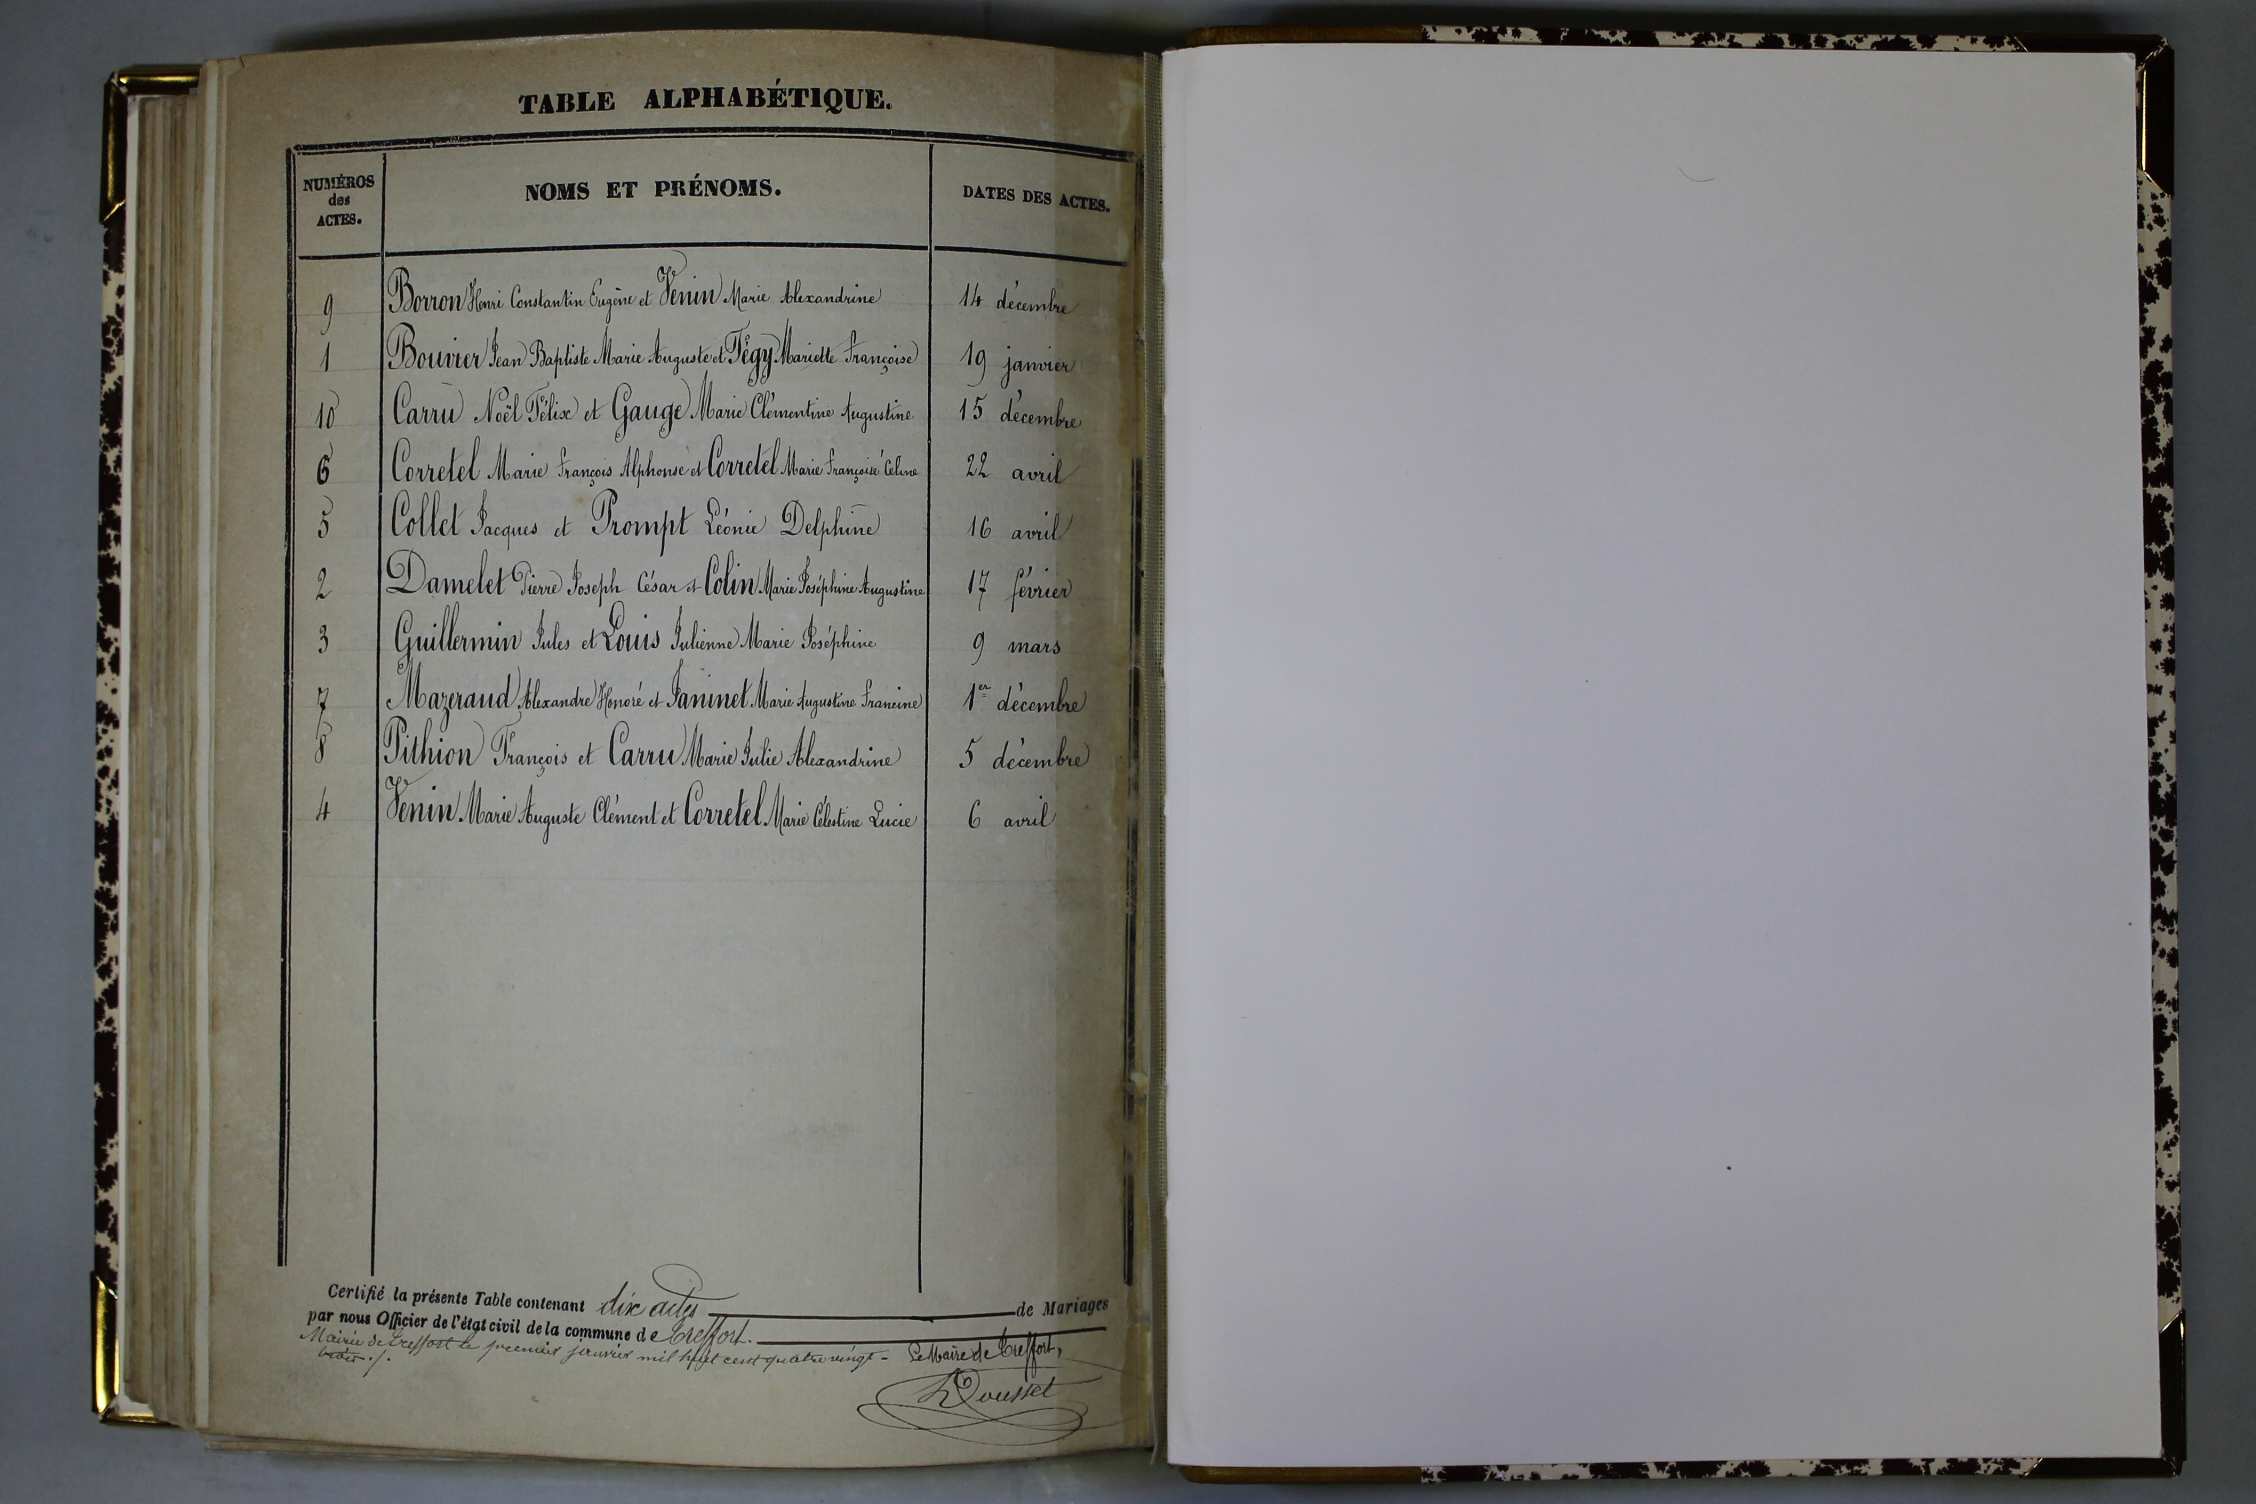 TABLE ALPHABÉTIQUE.
NUMÉROS
des
ACTES.
NOMS ET PRÉNOMS.
DATES DES ACTES.
9 Borron Henri Constantin Eugène et Venin Marie Alexandrine 14 décembre
1 Bouvier Jean Baptiste Marie Auguste et Tégy Mariette Françoise 19 janvier
10 Carru Noël Félix et Gauge Marie Clémentine Augustine 15 décembre
6 Corretel Marie François Alphonse et Corretel Marie Françoise Céline 22 avril
5 Collet Jacques et Prompt Léonie Delphine 16 avril
2 Damelet Pierre Joseph César et Colin Marie Joséphine Augustine 17 février
3 Guillermin Jules et Louis Julienne Marie Joséphine 9 mars
7 Mazeraud Alexandre Honoré et Janinet Marie Augustine Francine 1er décembre
8 Pithion François et Carru Marie Julie Alexandrine 5 décembre
4 Venin Marie Auguste Clément et Corretel Marie Célestine Lucie 6 avril
Certifié la présente Table contenant dix actes de Mariages
par nous Officier de l'état civil de la commune de Treffort.
Mairie de Treffort le premier janvier mil huit cent quatre vingt-
trois ./.
Le Maire de Treffort,
Dousset